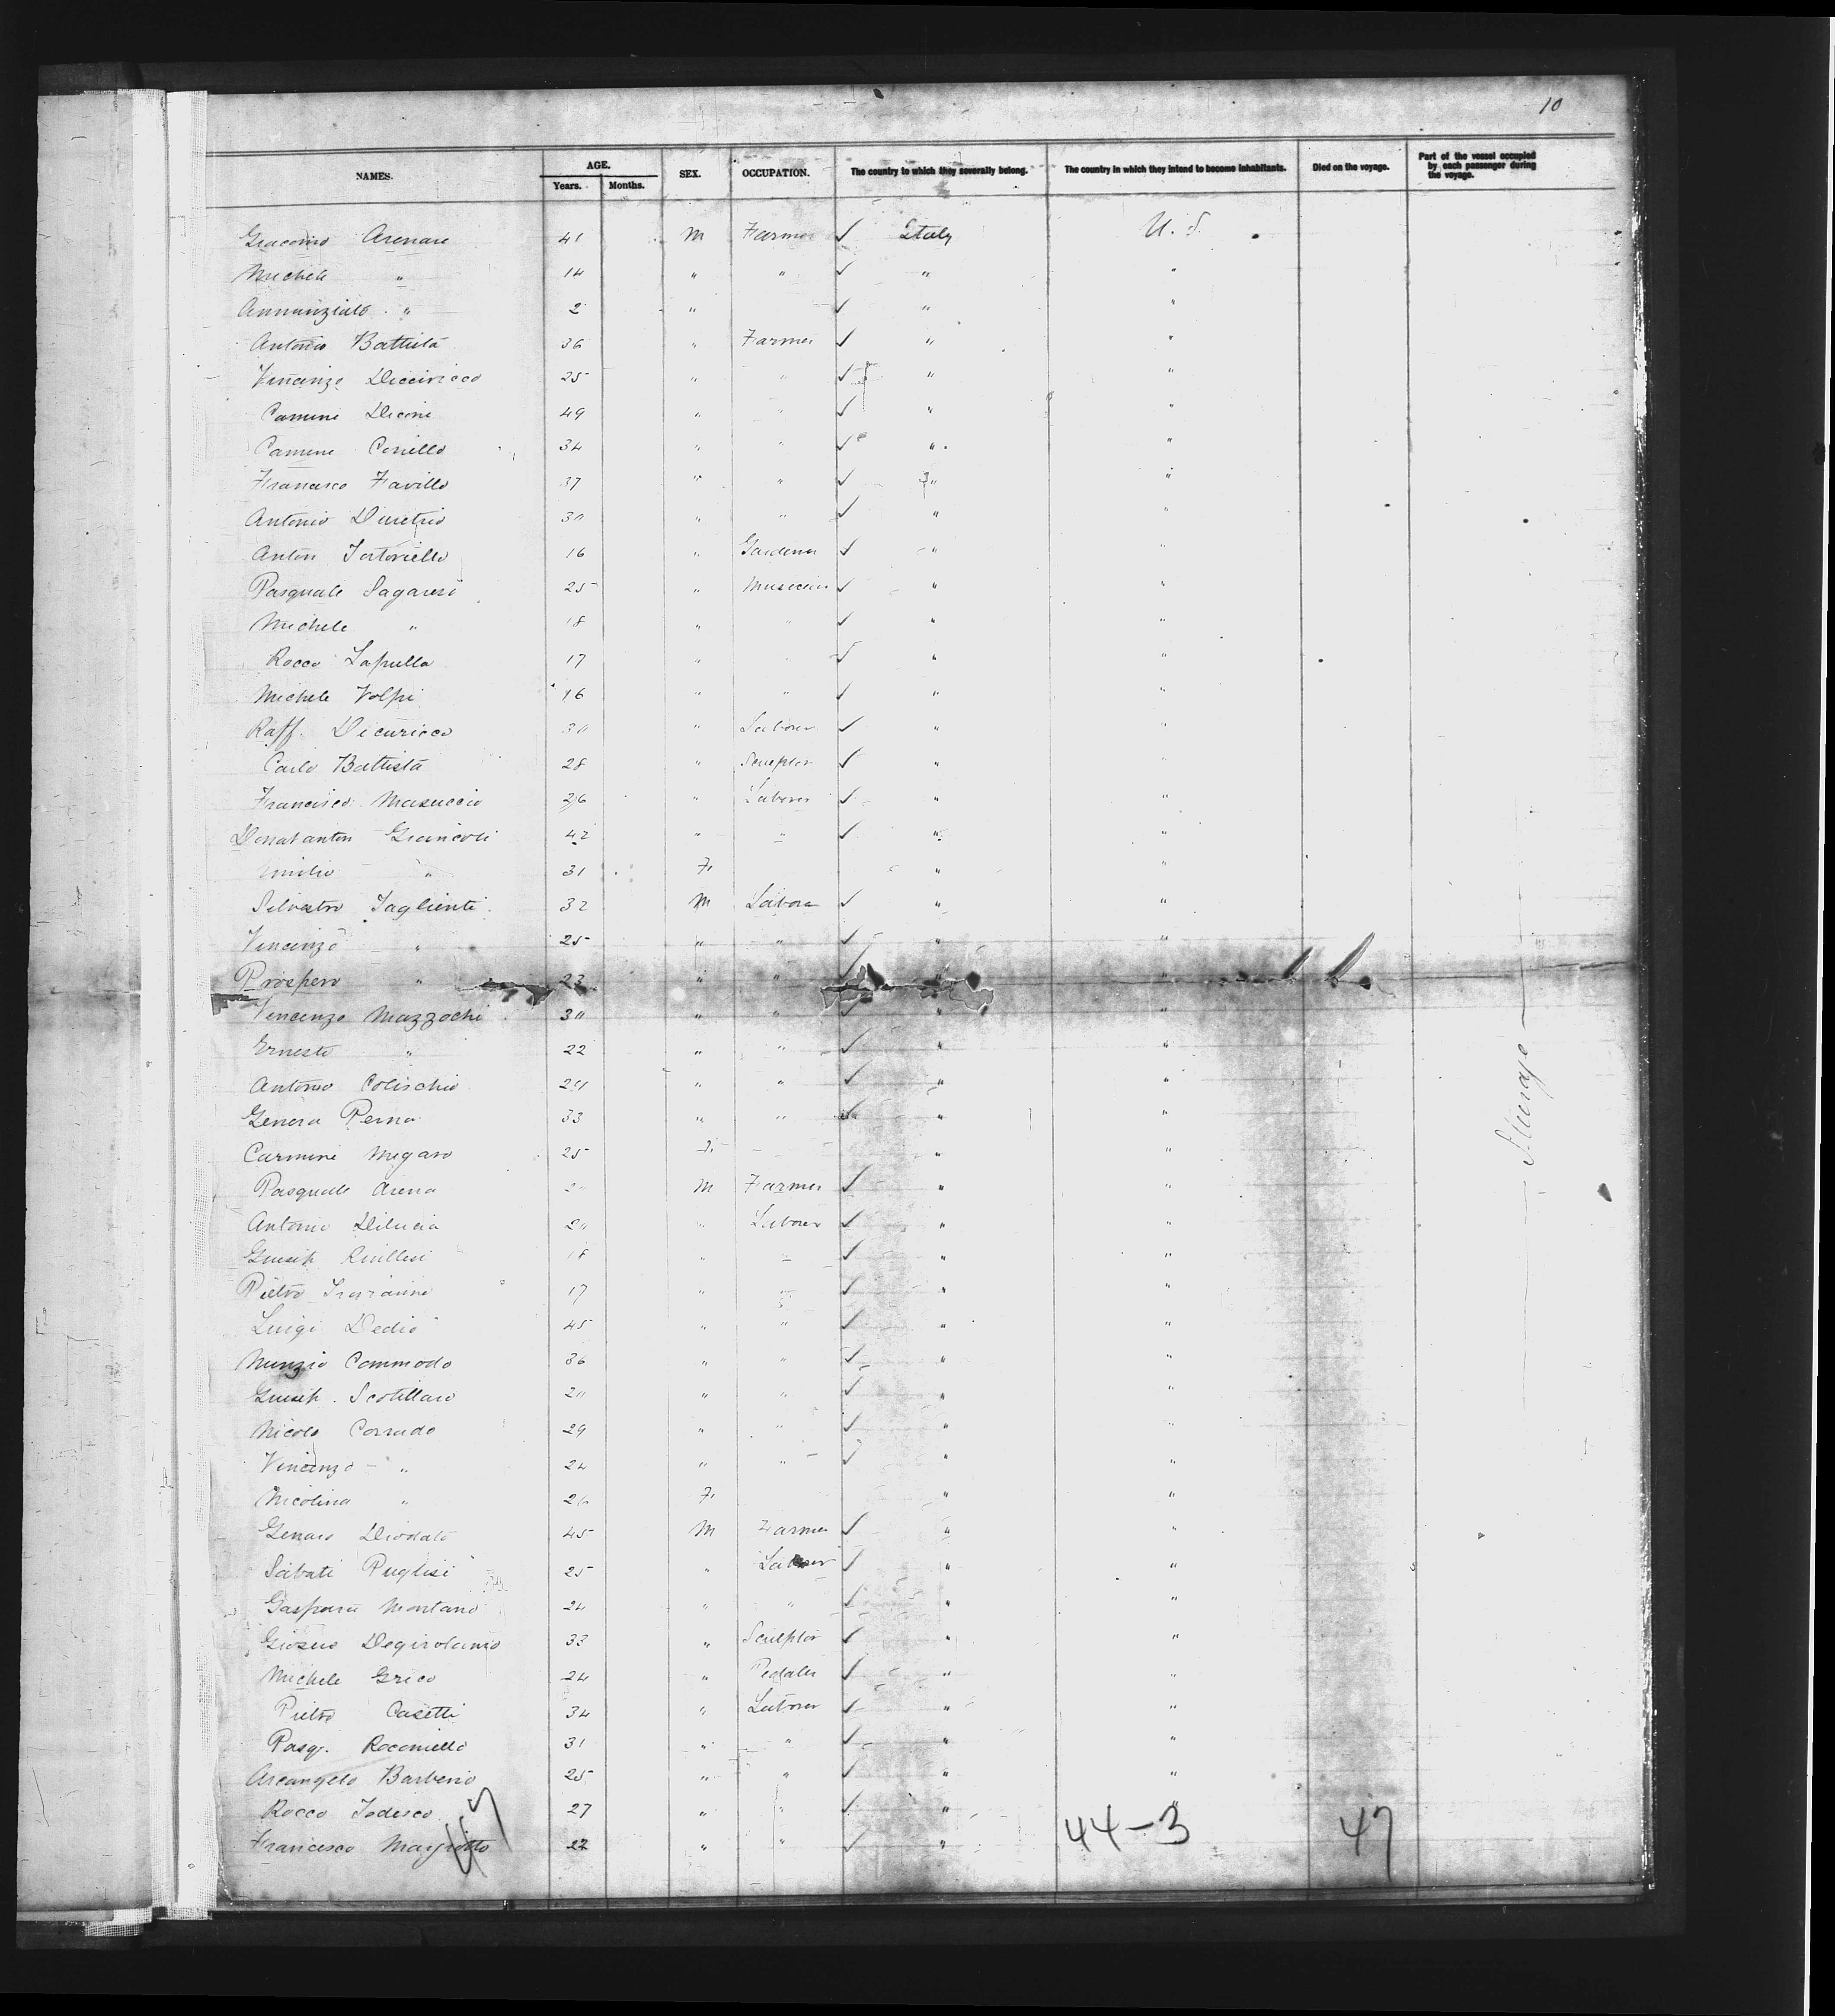 10
NAMES. AGE. Years. Months. SEX. OCCUPATION. The country to which they severally belong. The country in which they intend to become inhabitants. Died on the voyage. Part of the vessel occupied by each passenger during the voyage.
Giacomo Arenare 41 M Farmer ✓ Italy U.S.
Michele " 14 " " ✓ " "
Annunziato " 2 " ✓ " "
Antonio Battista 36 " Farmer ✓ " "
Vincenzo 25 " " ✓ " "
Camine 49 " " ✓ " "
Camine 34 " " ✓ " "
Francesco Favillo 37 " " ✓ " "
Antonio 30 " " ✓ " "
Anton Tortoriello 16 " Gardener ✓ " "
Pasquale 25 " Musician ✓ " "
Michele " 18 " " ✓ " "
Rocco Lapulla 17 " " ✓ " "
Michele Volpi 16 " " ✓ " "
Raff. Dicuricco 30 " Laborer ✓ " "
Carlo Battista 28 " Sculptor ✓ " "
Francisco Masuccio 26 " Laborer ✓ " "
Donatanton 42 " " ✓ " "
Emilio " 31 F. " "
Silvestro Taglienti 32 M Laborer ✓ " "
Vincenzo " 25 " " ✓ " "
Prospero " 23 " " ✓ " "
Vincenzo Mazzochi 30 " " ✓ " "
Ernesto " 22 " " ✓ " "
Antonio Colischio " " ✓ " "
Genera Perna 33 " " ✓ " "
Carmine Megaro 25 F. " "
Pasquale Arena M Farmer ✓ " "
Antonio Dilucia 20 " Laborer ✓ " "
Giusep. 18 " " ✓ " "
Pietro 17 " " ✓ " "
Luigi Dedio 45 " " ✓ " "
Nunzio Commodo 36 " " ✓ " "
Giusep. Scotillaro 20 " " ✓ " "
Nicola Corrado 29 " " ✓ " "
Vincenzo " 24 " " ✓ " "
Nicolina " F. " "
Genaro Diodato 45 M Farmer ✓ " "
Sabati Puglisi 25 " Laborer ✓ " "
Gaspare Montano 24 " " ✓ " "
Giosue Degirolamo 33 " Sculptor ✓ " "
Michele Grico 24 " Pedaler ✓ " "
Pietro Casetti 34 " Laborer ✓ " "
Pasq. Roconiello 31 " " ✓ " "
Arcangelo Barberio 25 " " ✓ " "
Rocco Tedesco 27 " " ✓ " "
Francesco 22 " " ✓ "
47
44-3 47
Steerage